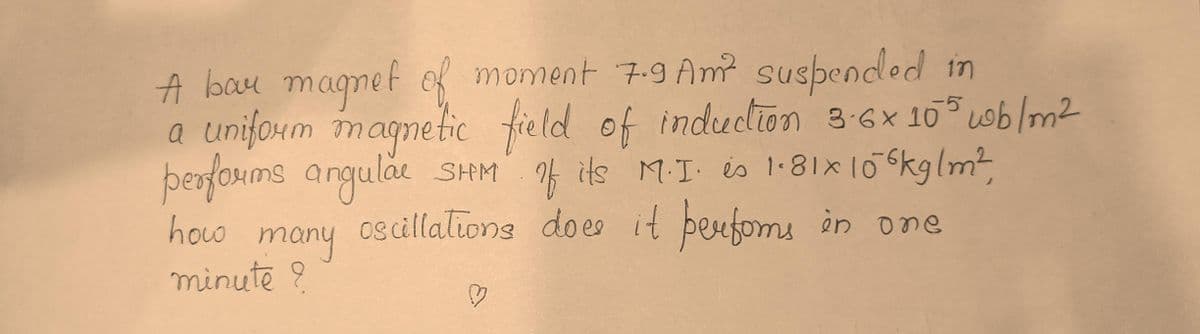 A bar magnet of moment 7.9 Am² suspended in
a uniform magnetic field of induction 3.6 x 10⁻⁵ wb/m²
performs angular SHM. If its M.I. is 1.81 x 10⁻⁶kg/m²,
how many oscillations does it perfoms in one
minute ?